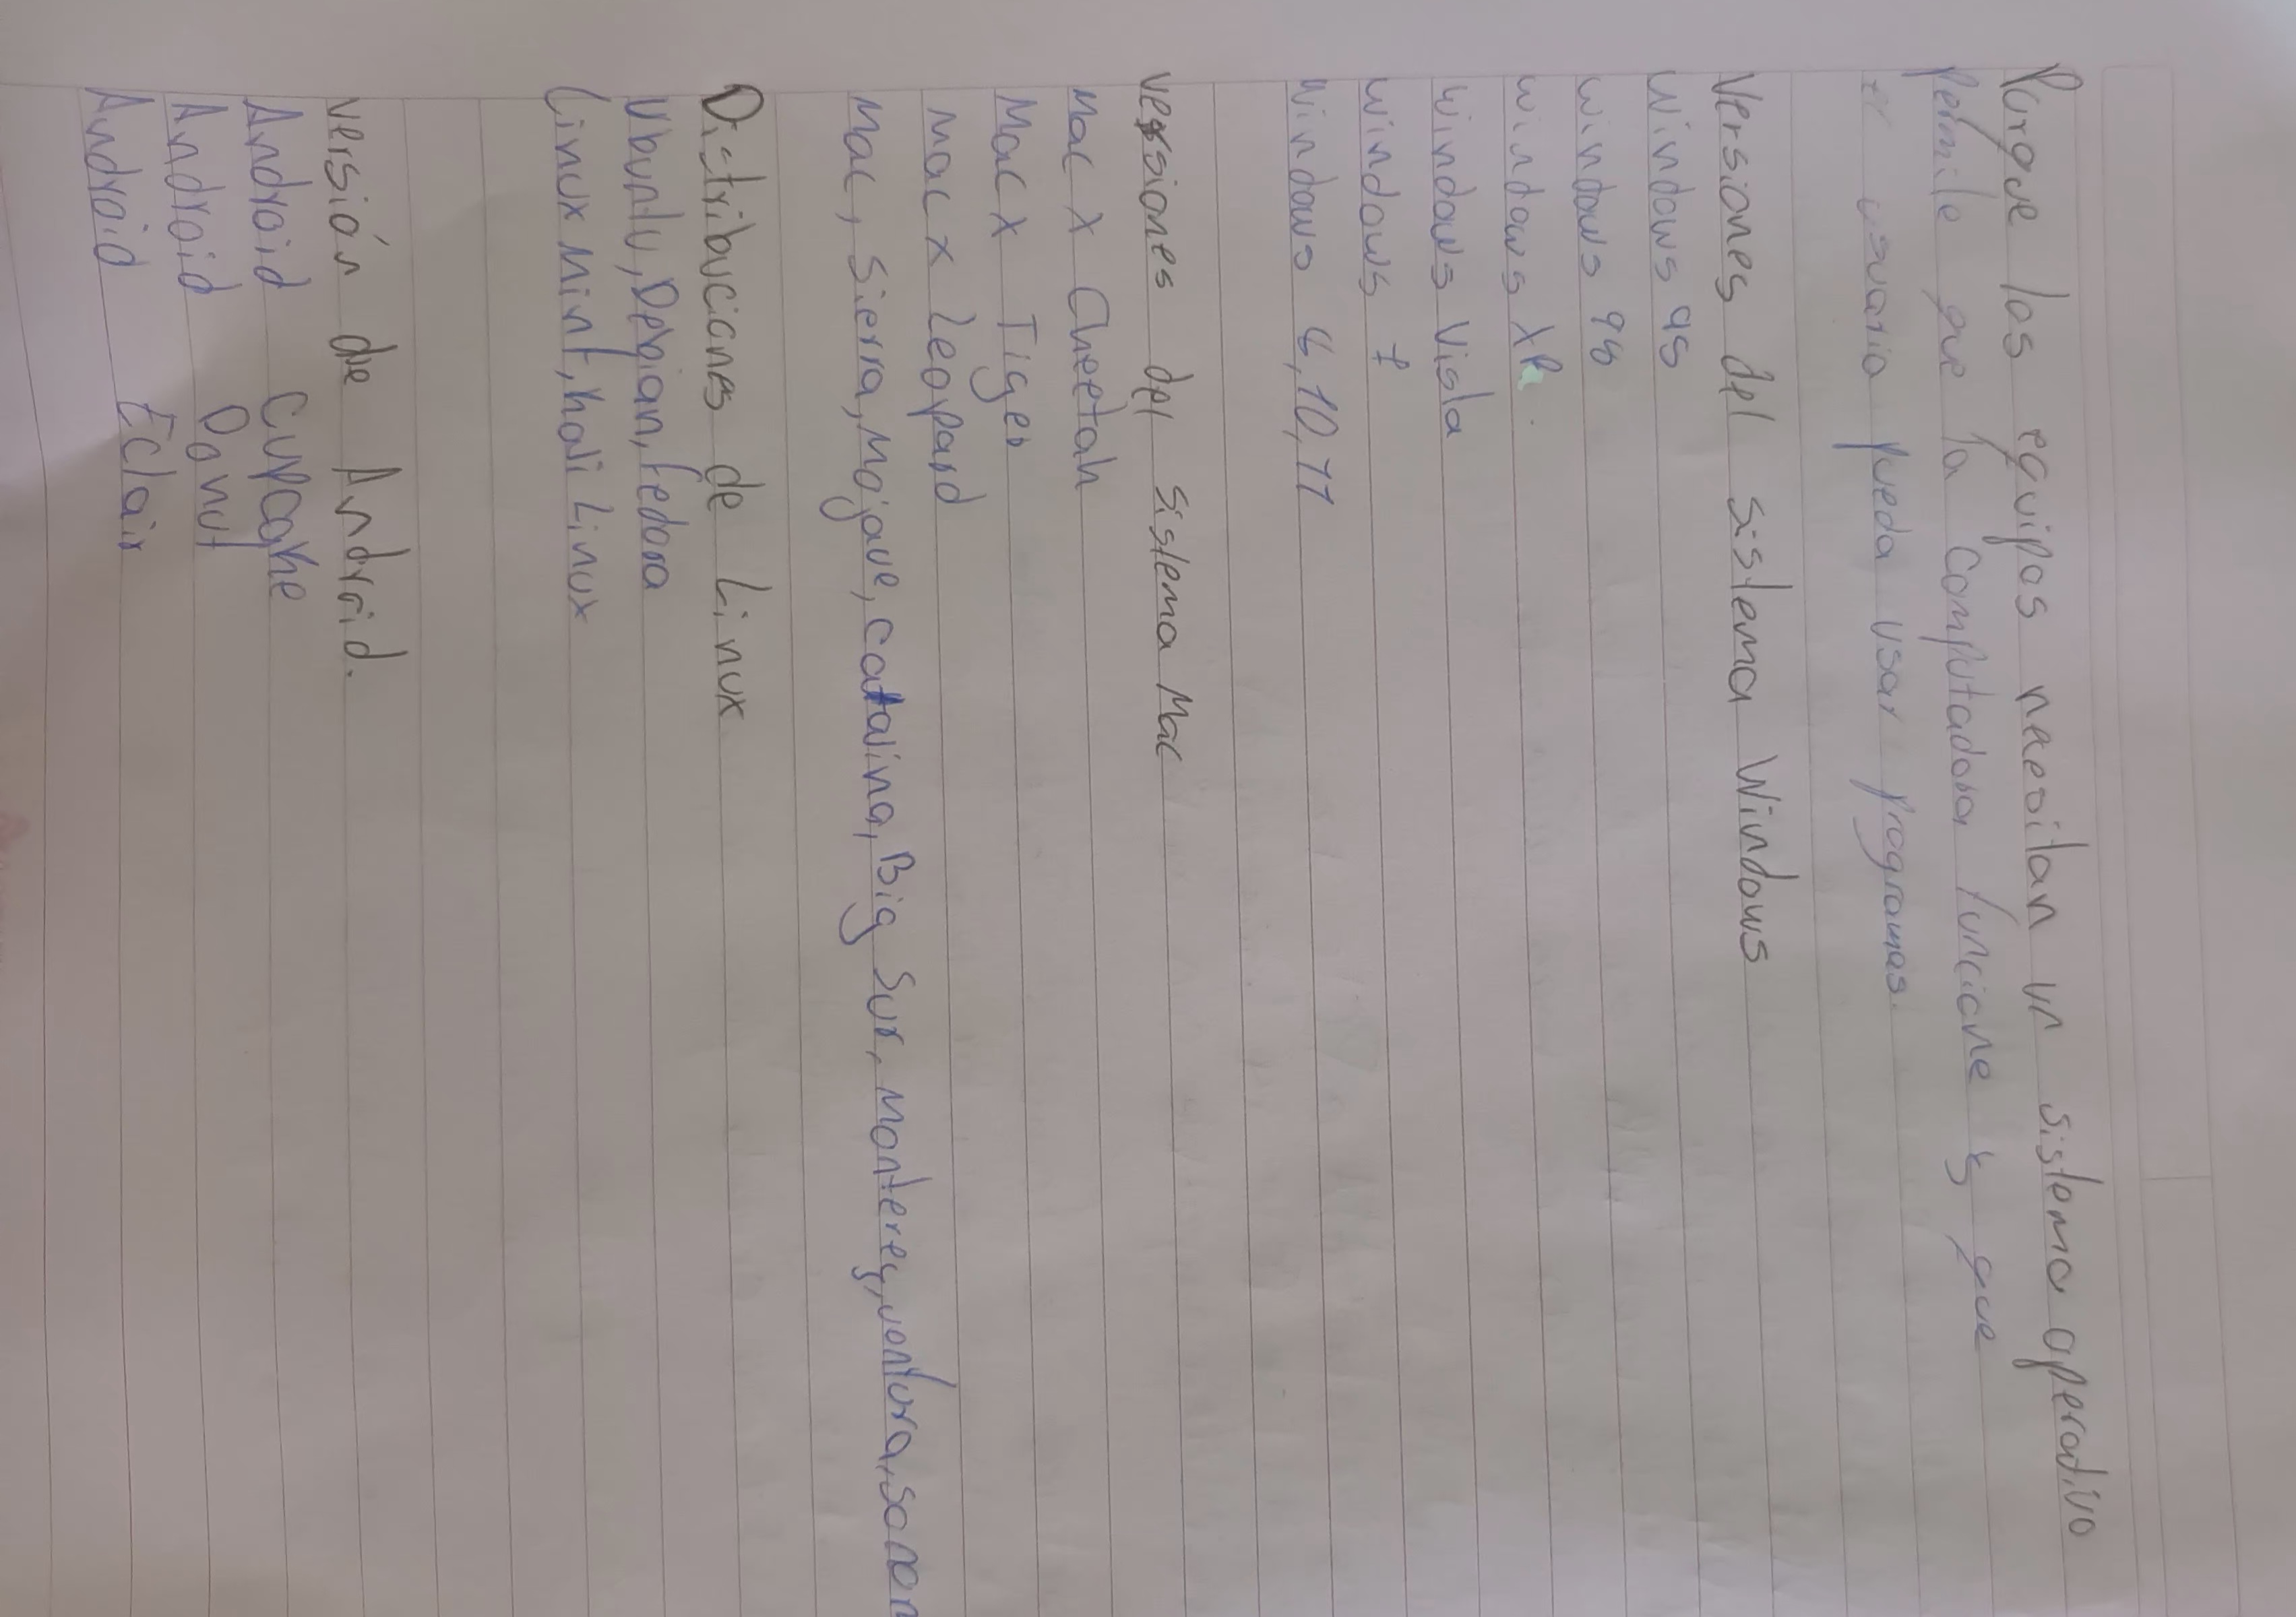 Porque los equipos naesitan un sistema operativo
Permite que la computadora funcione y que
el usuario pueda usar programas.
Versiones del sistema Windows
Windows 95
Windows 98
Windows XP
Windows Vista
Windows 7
Windows 8, 10, 11
versiones del sistema Mac
Mac X Cheetah
Mac X Tiger
Mac X Leopard
Mac, Sierra, Mojave, catalina, Big Sur, Monterey, ventura, sonon
Distribuciones de Linux
Ubuntu, Debian, Fedora
Linux Mint, kali Linux
versión de Android.
Android Cupcake
Android Donut
Android Eclair